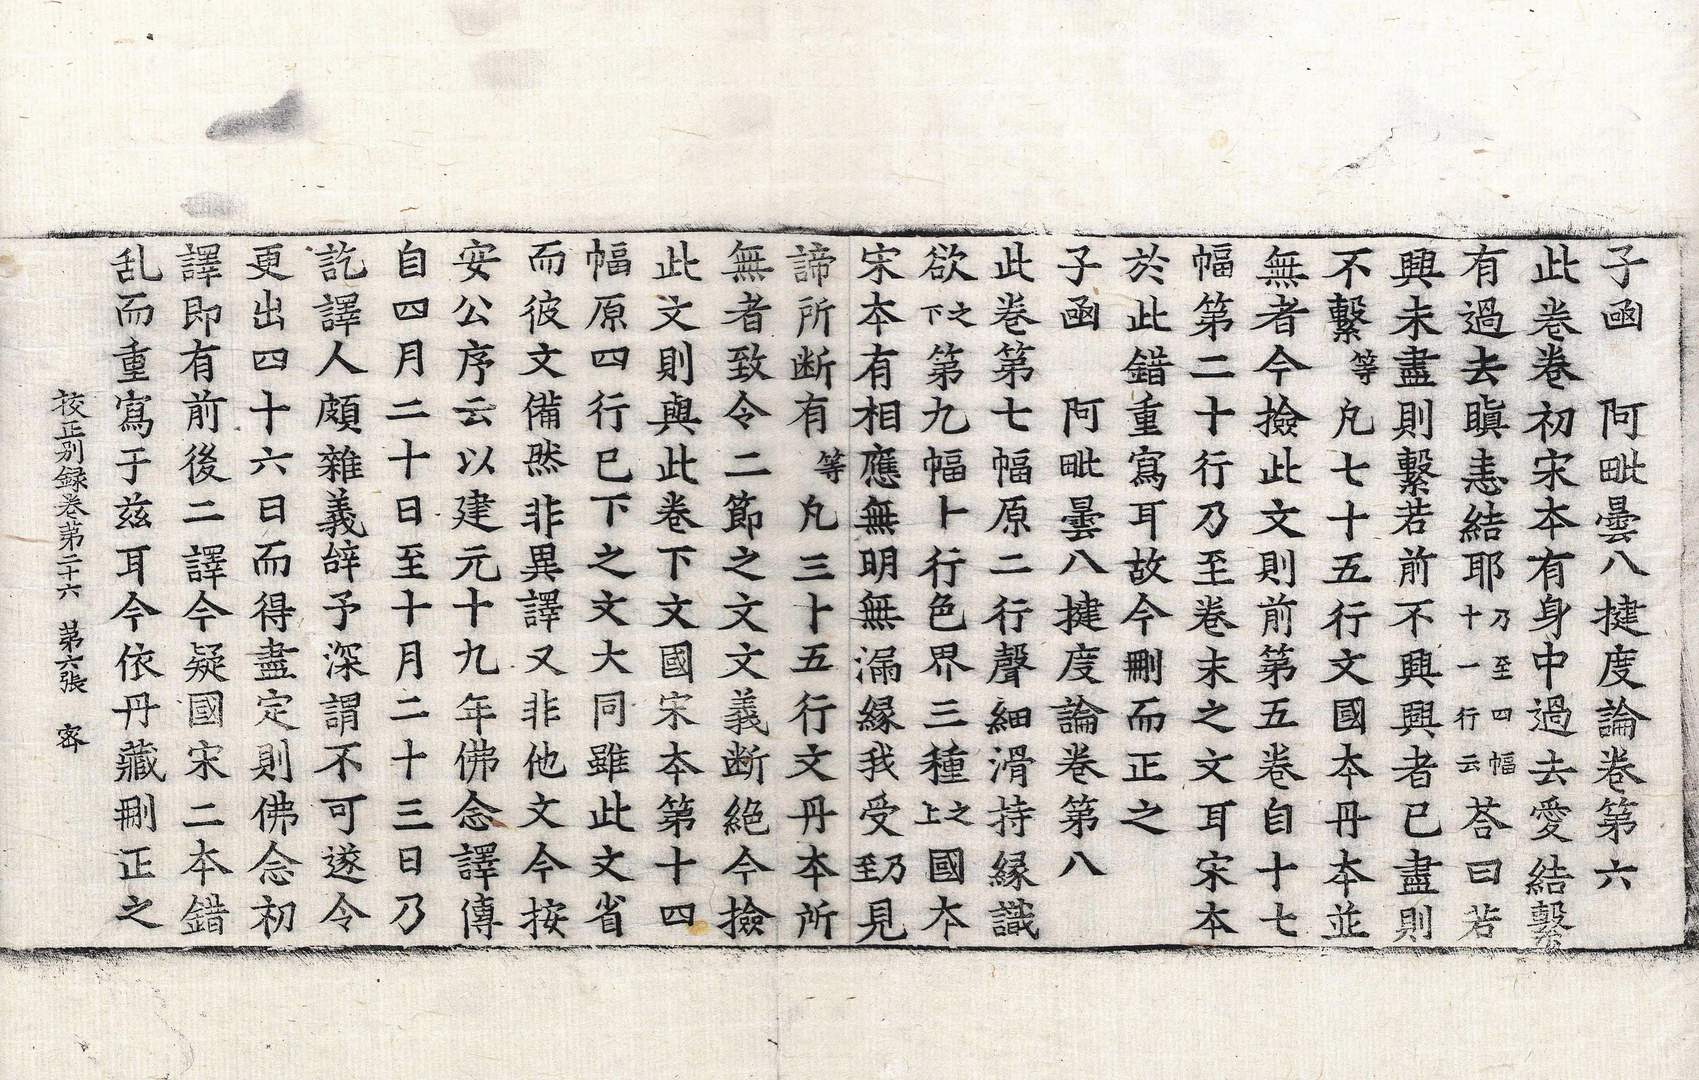 子函　阿毗曇八揵度論卷第六
此卷卷初宋本有身中過去愛結繫
有過去瞋恚結耶乃至四幅十一行云荅曰若
興未盡則繫若前不興興者已盡則
不繫等凡七十五行文國本丹本並
無者今撿此文則前第五卷自十七
幅第二十行乃至卷末之文耳宋本
於此錯重寫耳故今刪而正之
子函　阿毗曇八揵度論卷第八
此卷第七幅原二行聲細滑持緣識
欲之下第九幅卜行色界三種之上國本
宋本有相應無明無漏緣我受乃至見
諦所断有等凡三十五行文丹本所
無者致令二節之文文義断絕今撿
此文則與此卷下文國宋本第十四
幅原四行已下之文大同雖此文省
而彼文備然非異譯又非他文今按
安公序云以建元十九年佛念譯傳
自四月二十日至十月二十三日乃
訖譯人頗雜義辝予深謂不可遂令
更出四十六日而得盡定則佛念初
譯即有前後二譯今疑國宋二本錯
乱而重寫于兹耳今依丹藏刪正之
挍正別録卷苐二十六　苐六張　密